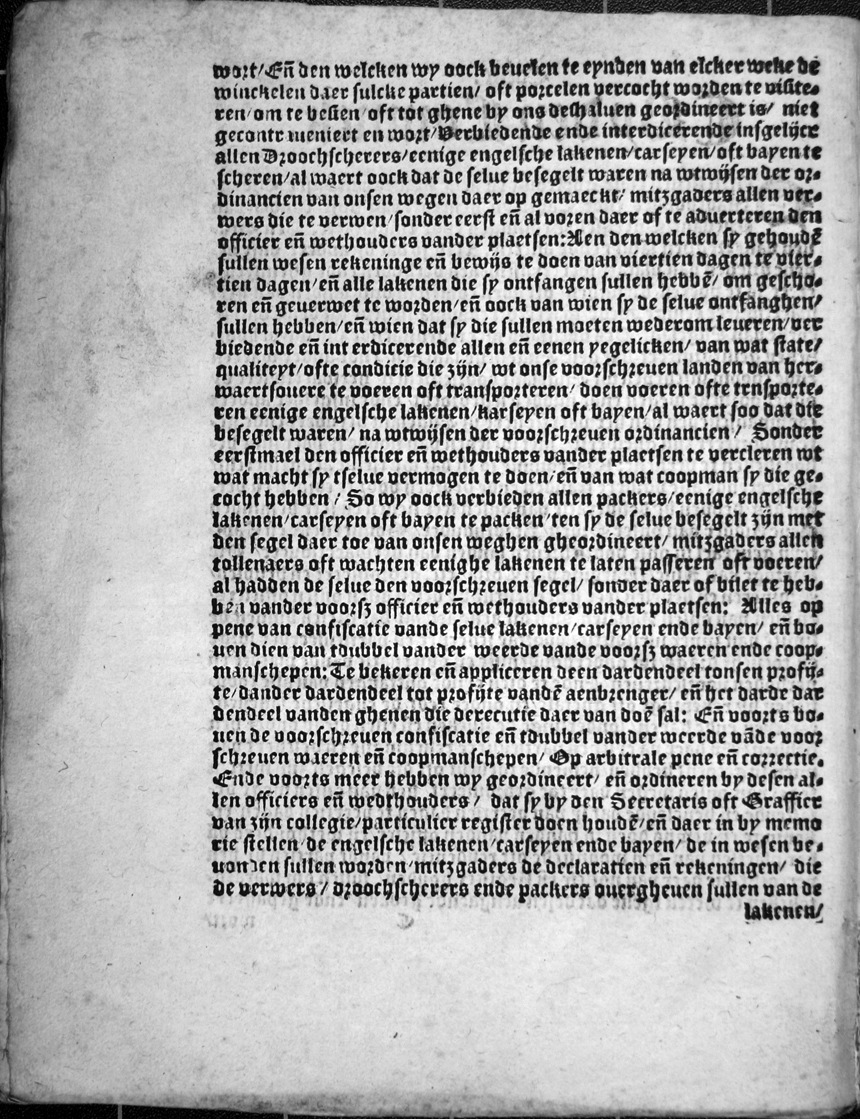 wort/ Eñ den welcken wy oock beuelen te eynden van elcker weke de
winckelen daer sulcke partien/ oft porcelen vercocht worden te visite-
ren/ om te besien/ oft tot ghene by ons deshaluen geordineert is/ niet
gecontr ueniert en wort/ Verbiedende ende interdicerende insgelijcx
allen Droochscherers/ eenige engelsche lakenen/ carseyen/ oft bayen te
scheren/ al waert oock dat de selue besegelt waren na wtwijsen der or-
dinancien van onsen wegen daer op gemaeckt/ mitzgaders allen ver-
wers die te verwen/ sonder eerst eñ al voren daer of te aduerteren den
officier eñ wethouders vander plaetsen: Aen den welcken sy gehoudē
sullen wesen rekeninge eñ bewijs te doen van viertien dagen te vier-
tien dagen/ eñ alle lakenen die sy ontfangen sullen hebbē/ om gescho-
ren eñ geuerwet te worden/ eñ oock van wien sy de selue ontfanghen/
sullen hebben/ eñ wien dat sy die sullen moeten wederom leueren/ ver
biedende eñ int erdicerende allen eñ eenen yegelicken/ van wat state/
qualiteyt/ ofte condicie die zijn/ wt onse voorschreuen landen van her-
waertsouere te voeren oft transporteren/ doen voeren ofte trnsporte-
ren eenige engelsche lakenen/ karseyen oft bayen/ al waert soo dat die
besegelt waren/ na wtwijsen der voorschreuen ordinancien/ Sonder
eerstmael den officier eñ wethouders vander plaetsen te vercleren wt
wat macht sy tselue vermogen te doen/ eñ van wat coopman sy die ge-
cocht hebben/ So wy oock verbieden allen packers/ eenige engelsche
lakenen/ carseyen oft bayen te packen/ ten sy de selue besegelt zijn met
den segel daer toe van onsen weghen gheordineert/ mitzgaders allen
tollenaers oft wachten eenighe lakenen te laten passeren oft voeren/
al hadden de selue den voorschreuen segel/ sonder daer of bilet te heb-
ben vander voorsz officier eñ wethouders vander plaetsen: Alles op
pene van confiscatie vande selue lakenen/ carseyen ende bayen/ eñ bo-
uen dien van tdubbel vander weerde vande voorsz waeren ende coop-
manschepen: Te bekeren eñ appliceren deen dardendeel tonsen profij-
te/ dander dardendeel tot profijte vandē aenbrenger/ eñ het darde dar
dendeel vanden ghenen die derecutie daer van doē sal: Eñ voorts bo-
uen de voorschreuen confiscatie eñ tdubbel vander weerde vāde voor
schreuen waeren eñ coopmanschepen/ Op arbitrale pene eñ correctie.
Ende voorts meer hebben wy geordineert/ eñ ordineren by desen al-
len officiers eñ wedthouders/ dat sy by den Secretaris oft Graffier
van zijn collegie/ particulier register doen houdē/ eñ daer in by memo
rie stellen de engelsche lakenen/ carseyen ende bayen/ de in wesen be-
uonden sullen worden/ mitzgaders de declaratien eñ rekeningen/ die
de verwers/ droochscherers ende packers ouergheuen sullen van de
lakenen/